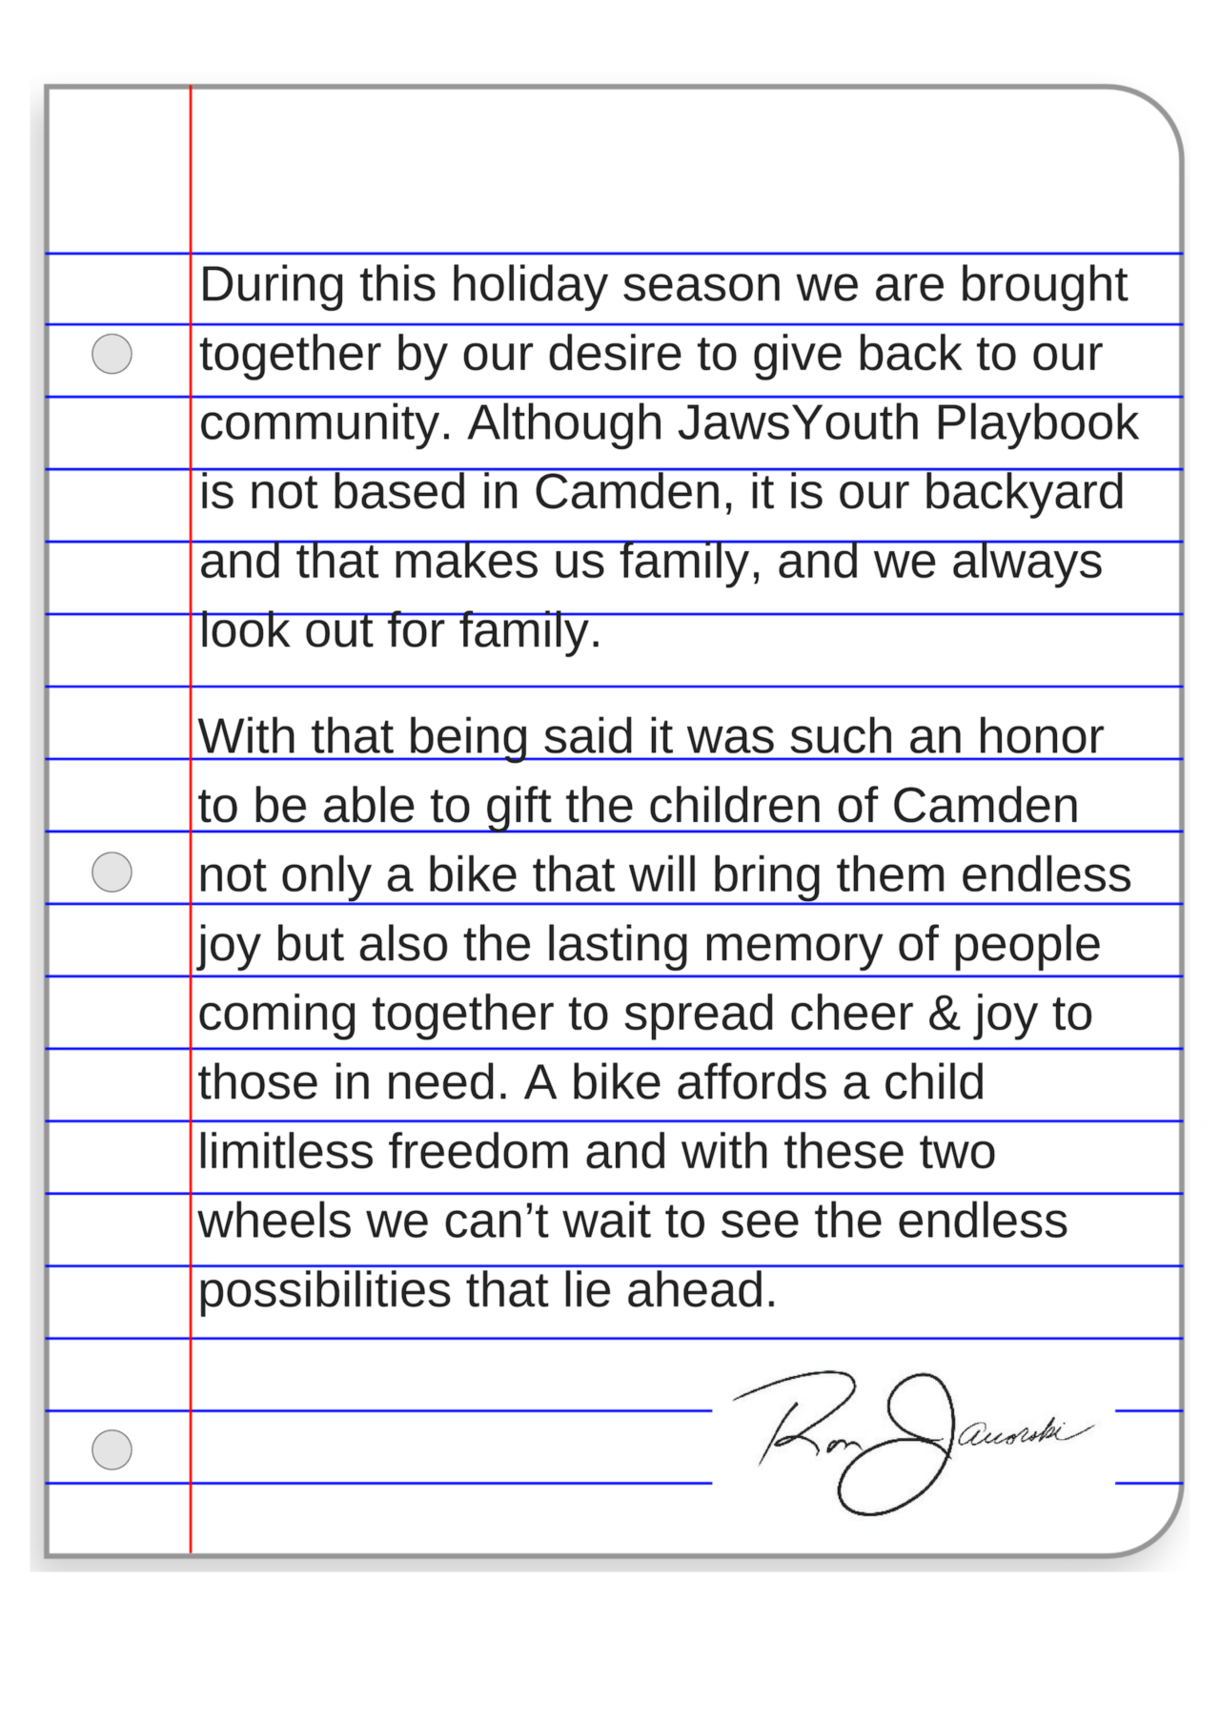 During this holiday season we are brought
together by our desire to give back to our
community. Although JawsYouth Playbook
is not based in Camden, it is our backyard
and that makes us family, and we always
look out for family.
With that being said it was such an honor
to be able to gift the children of Camden
not only a bike that will bring them endless
joy but also the lasting memory of people
coming together to spread cheer & joy to
those in need. A bike affords a child
limitless freedom and with these two
wheels we can’t wait to see the endless
possibilities that lie ahead.
Ron Jaworski